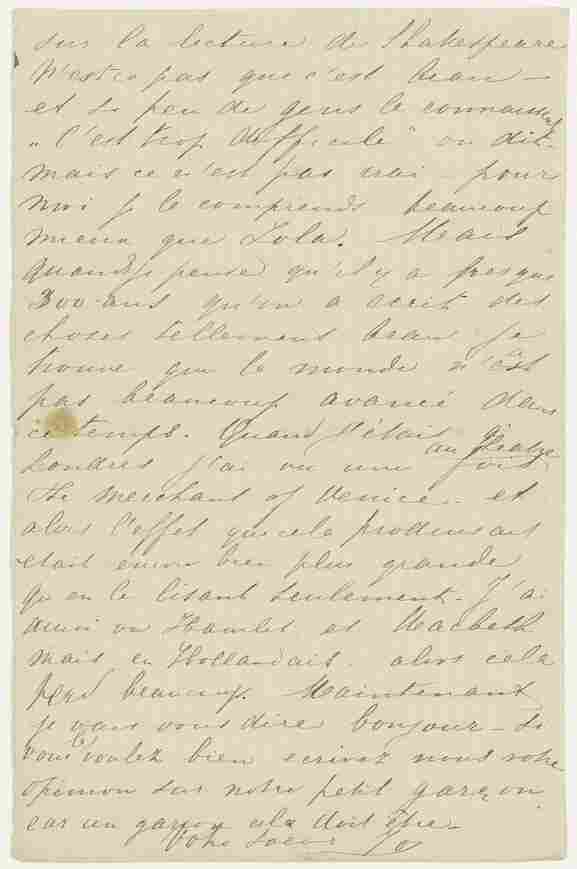 sur la lecture de Shakespeare
N'est ce pas que c'est beau —
et si peu de gens le connaissent
„ C'est trop difficile" on dit —
mais ce n'est pas vrai — pour
moi je le comprends beaucoup
mieux que Zola. Mais
quand je pense qu'il y a presque
300 ans qu'on a écrit des
choses tellement beau je
trouve que le monde n'est
pas beaucoup avancé dans
ce temps. Quand j'étais à
Londres j'ai vu une fois au théatre
the Merchant of Venice. et
alors l'effet que cela produisait
était encore bien plus grande
qu'en le lisant seulement. J'ai
aussi vu Hamlet et Macbeth
mais en Hollandais. alors cela
perd beaucoup. Maintenant
je vais vous dire bonjour — Si
vous le voulez bien ecrivez nous votre
opinion sur notre petit garçon.
car un garçon cela doit être —
Votre soeur Jo